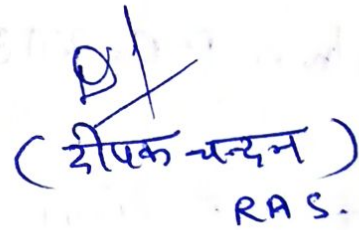 (दीपक चन्दन)
RAS.